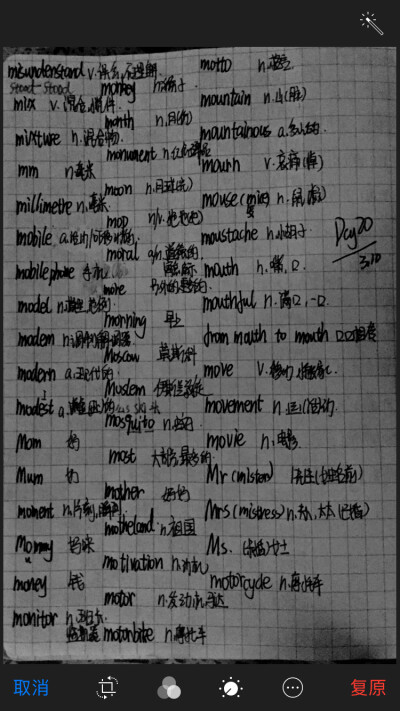 misunderstand v.误会,不理解
stood - stood
mix v.混合,搅拌
mixture n.混合物
mm n.毫米
millimetre n.毫米
mobile a.
mobile phone 手机
model n.
modem n.调制解调器
modern a.现代的
modest a.
Mom 妈
Mum 妈
moment n.片刻,瞬间
Mommy 妈咪
money 钱
monitor n.班长
monkey n.猴子
month n.月份
monument n.
moon n.月球(光)
mop n/v.
moral a/n.道德的
more
morning 早上
Moscow 莫斯科
Moslem
mosquito n.蚊子
most 大部分,最多的
mother 妈妈
motherland n.祖国
motivation n.动机
motor n.发动机,马达
motorbike n.摩托车
motto n.
mountain n.山(脉)
mountainous a.多山的
mourn v.哀痛(悼)
mouse (mice) n.鼠
moustache n.小胡子
mouth n.嘴,口
mouthful n.满口,一口
from mouth to mouth 口口相传
move v.移动
movement n.运动,活动
movie n.电影
Mr (mister) 先生
Mrs (mistress) n.夫人,太太(已婚)
Ms. 女士
motorcycle n.摩托车
Day20
3.10
取消
复原